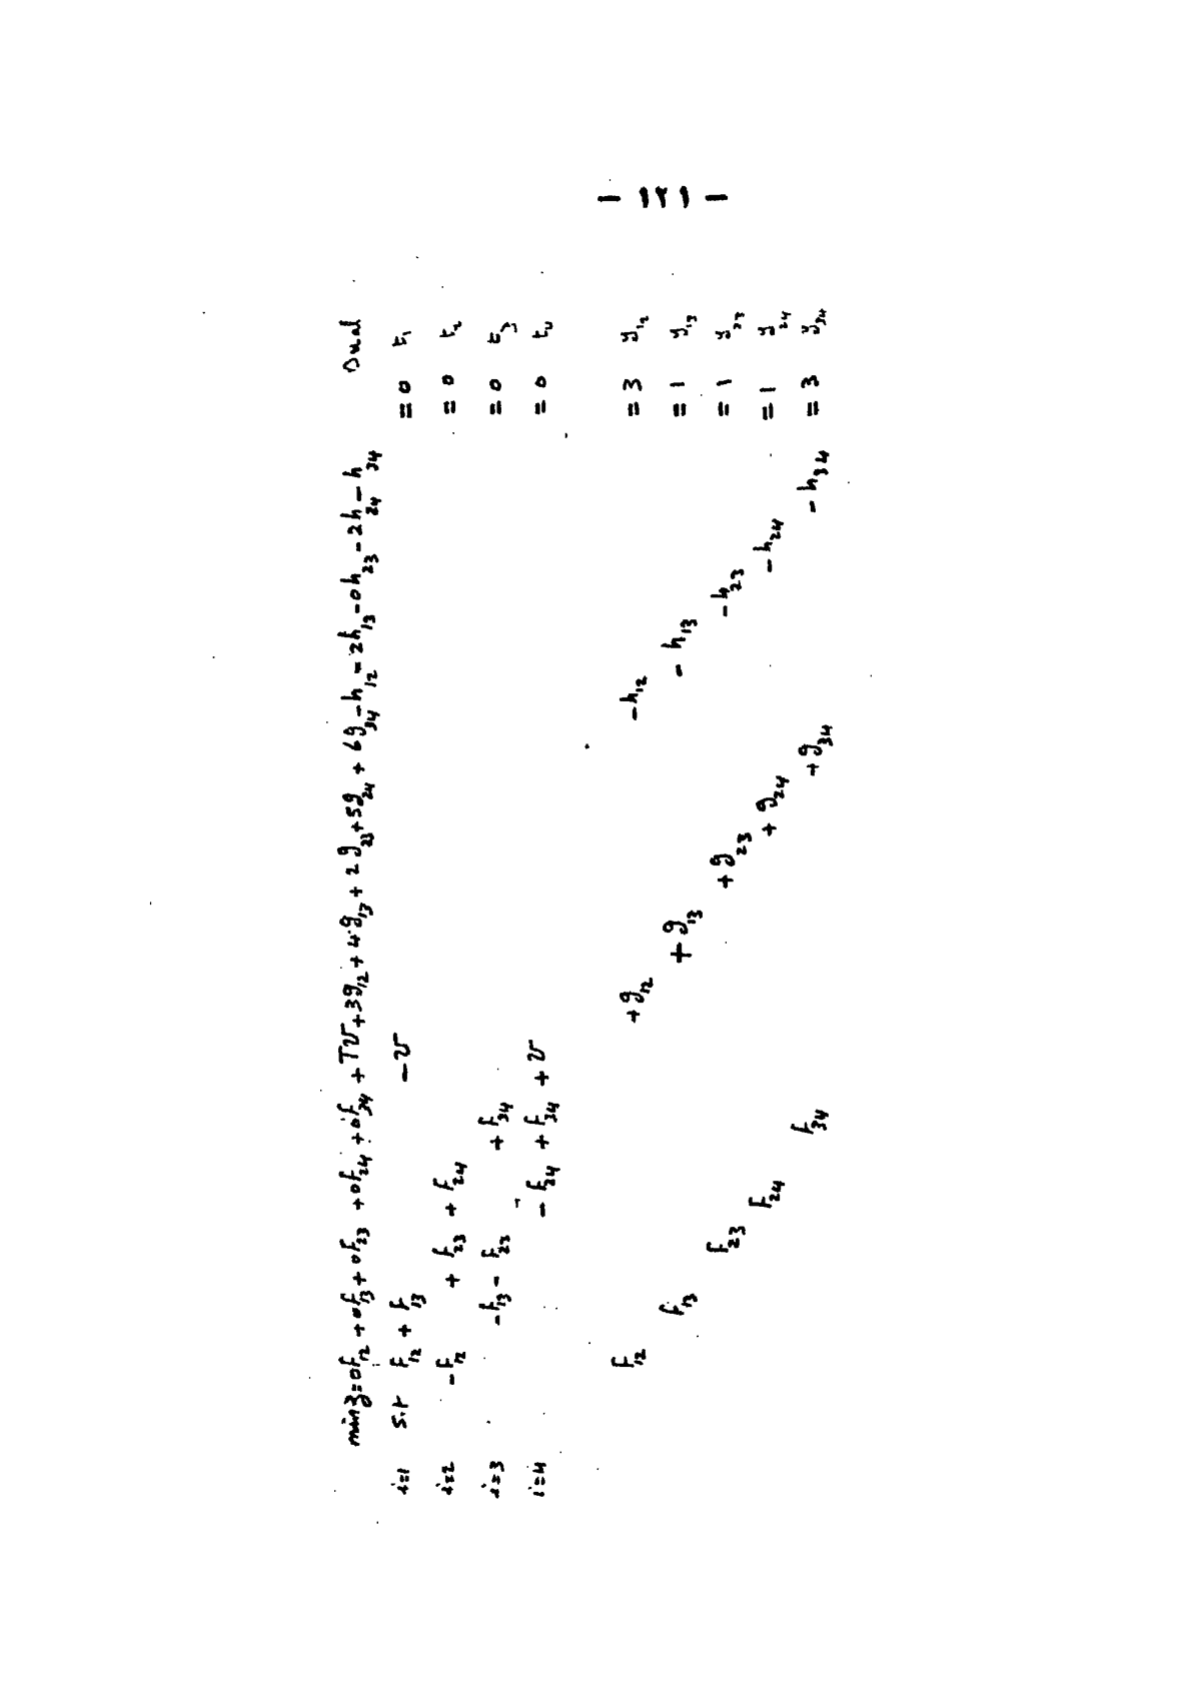 - ١٢١ -
min z = 0F12 + 0F13 + 0F23 + 0F24 + 0F34 + Tv + 3g12 + 4g13 + 2g23 + 5g24 + 6g34 - h12 - 2h13 - 0h23 - 2h24 - h34 Dual
i=1 s.t F12 + F13 - v = 0 t1
i=2 -F12 + F23 + F24 = 0 t2
i=3 -F13 - F23 + F34 = 0 t3
i=4 - F24 + F34 + v = 0 t4
F12 + g12 - h12 = 3 y12
F13 + g13 - h13 = 1 y13
F23 + g23 - h23 = 1 y23
F24 + g24 - h24 = 1 y24
F34 + g34 - h34 = 3 y34